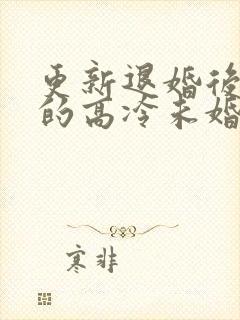 更新退婚後
的高冷未婚
寒非